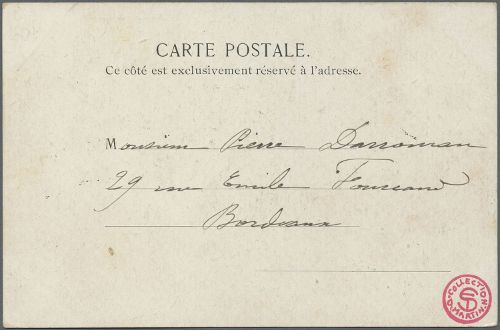 CARTE POSTALE.
Ce côté est exclusivement réservé à l'adresse.
Monsieur Pierre Darroman
29 rue Emile Fourcand
Bordeaux
COLLECTION
D. MARTIN